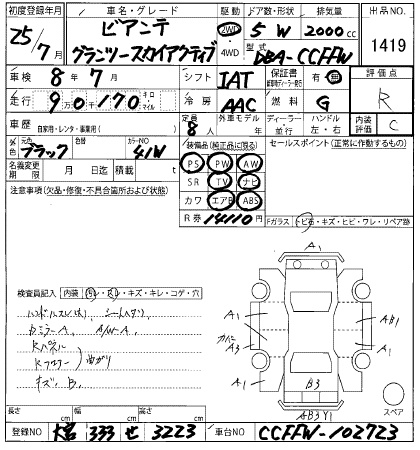 初度登録年月 車名・グレード 駆動 ドア数・形状 排気量 出品NO
25/7月 ビアンテ 2WD 5 W 2000cc 1419
グランツースカイアクティブ 4WD 型式 DBA-CCFFW
車検 8年7月 シフト IAT 保証書 有・無 評価点
走行 9万0千170 キロ マイル 冷房 AAC 燃料 G R
車歴 自家用・レンタ・事業用( ) 定員 8人 外車モデル 年 ディーラー 並行 ハンドル 左・右 内装評価 C
外色 元色 ブラック 色替 カラーNO 41W 装備品(純正品に限る) セールスポイント(正常に作動するもの)
名義変更期限 月 日迄 積載 t PS PW AW
注意事項(欠品・修復・不具合箇所および状態) SR TV ナビ
カワ エアB ABS
R券 14110円 Fガラス トビ石・キズ・ヒビ・ワレ・リペア跡
検査員記入 内装
・キズ・キレ・コゲ・穴
A1
A1 AB1
A3 A1
A1 A1
Rパネル
Rフロアー 曲がり
キズ、B.
B3
AB3Y1
スペア
長さ cm 幅 cm 高さ cm
登録NO 大宮 333 せ 3223 車台NO CCFFW-102723